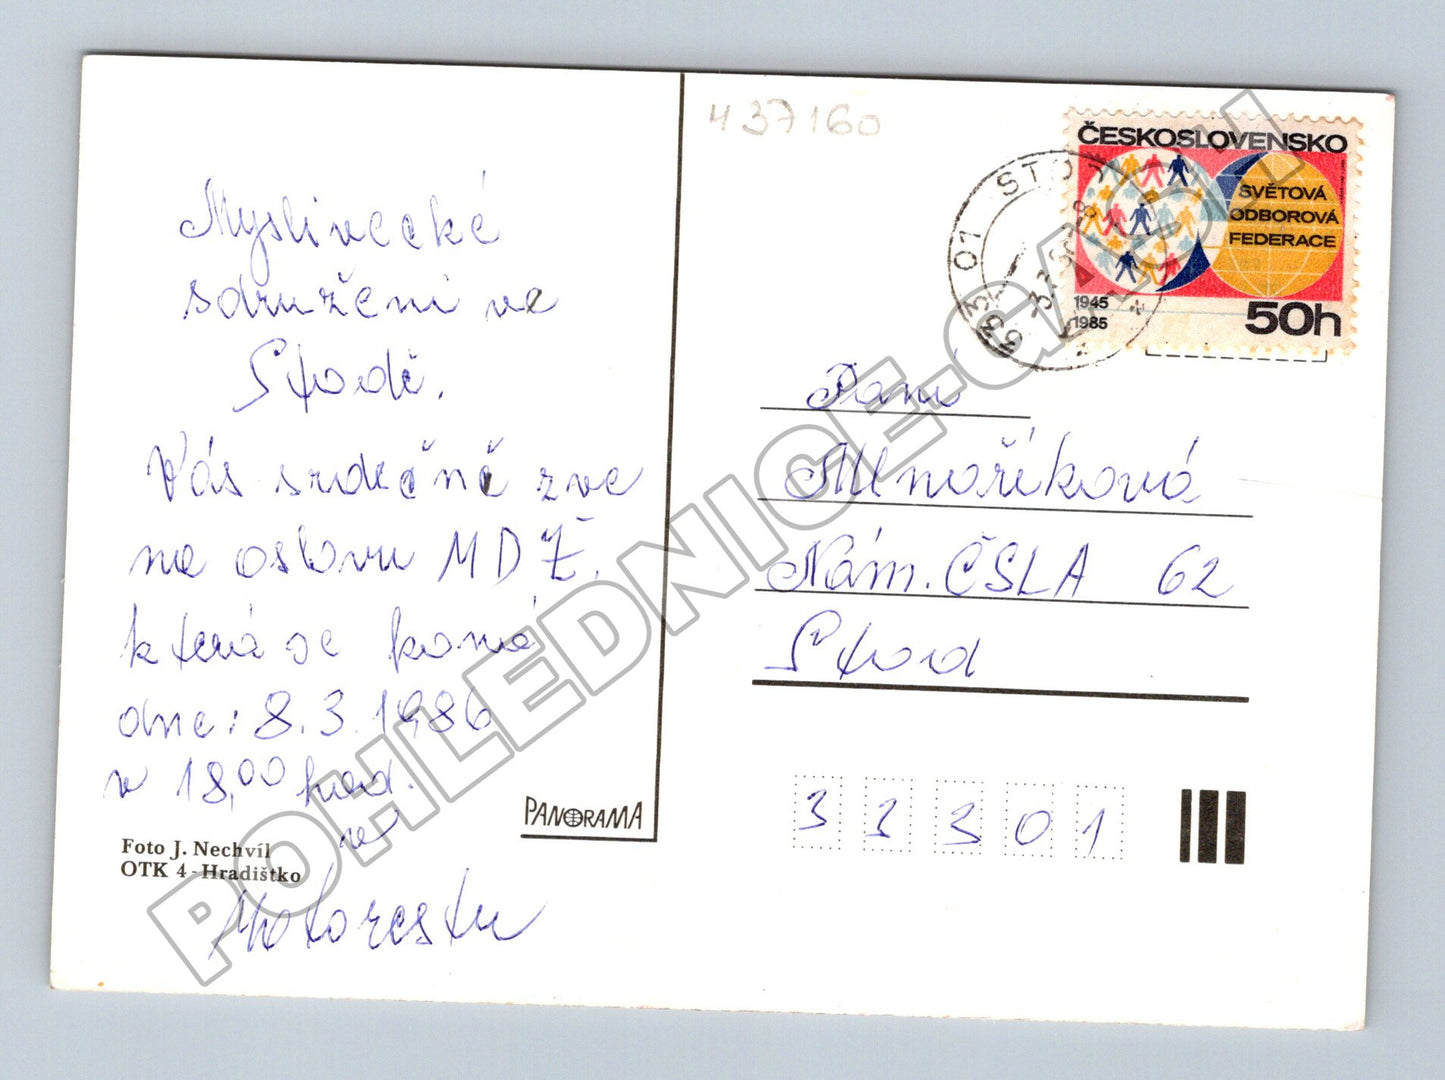 Myslivecké
sdružení ve
Stodě.
Vás srdečně zve
na oslavu MDŽ.
která se koná
dne: 8.3.1986
v 18,00 hod.
v
Motorestu
Foto J. Nechvíl
OTK 4-Hradištko
PANORAMA
437160
ČESKOSLOVENSKO
SVĚTOVÁ
ODBOROVÁ
FEDERACE
1945
1985
50h
333 01 STOD
Paní
Mlnaříková
Nám. ČSLA 62
Stod
33301
POHLEDNICE.GALOU